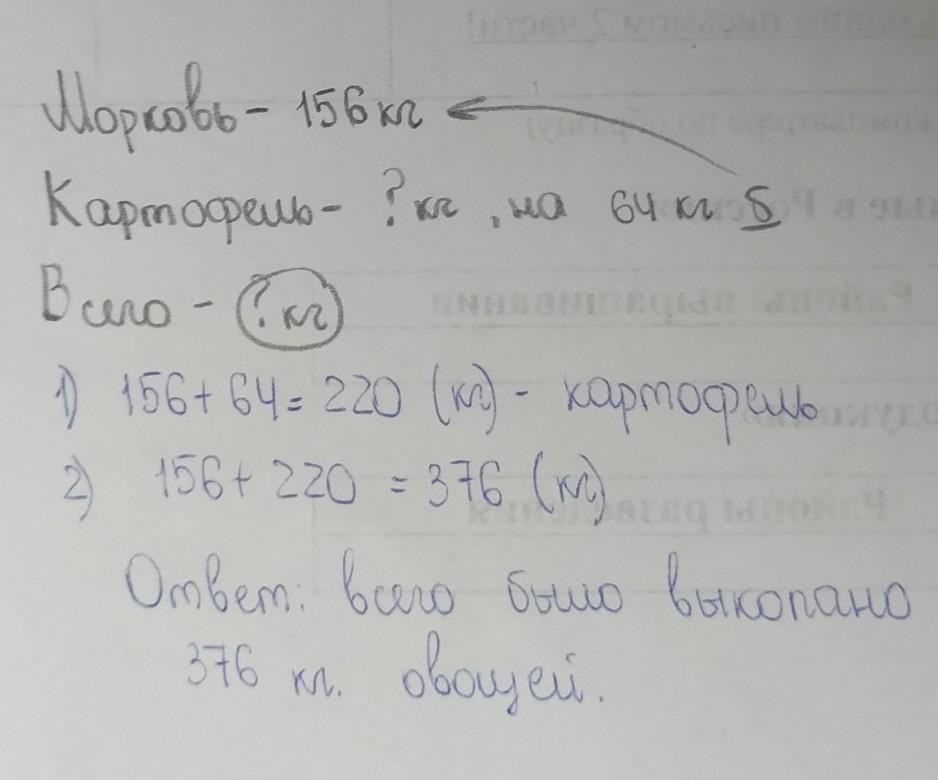 Морковь - 156 кг
Картофель - ? кг , на 64 кг б
Всего - ? кг
1) 156 + 64 = 220 (кг) - картофель
2) 156 + 220 = 376 (кг)
Ответ: всего было выкопано
376 кг. овощей.